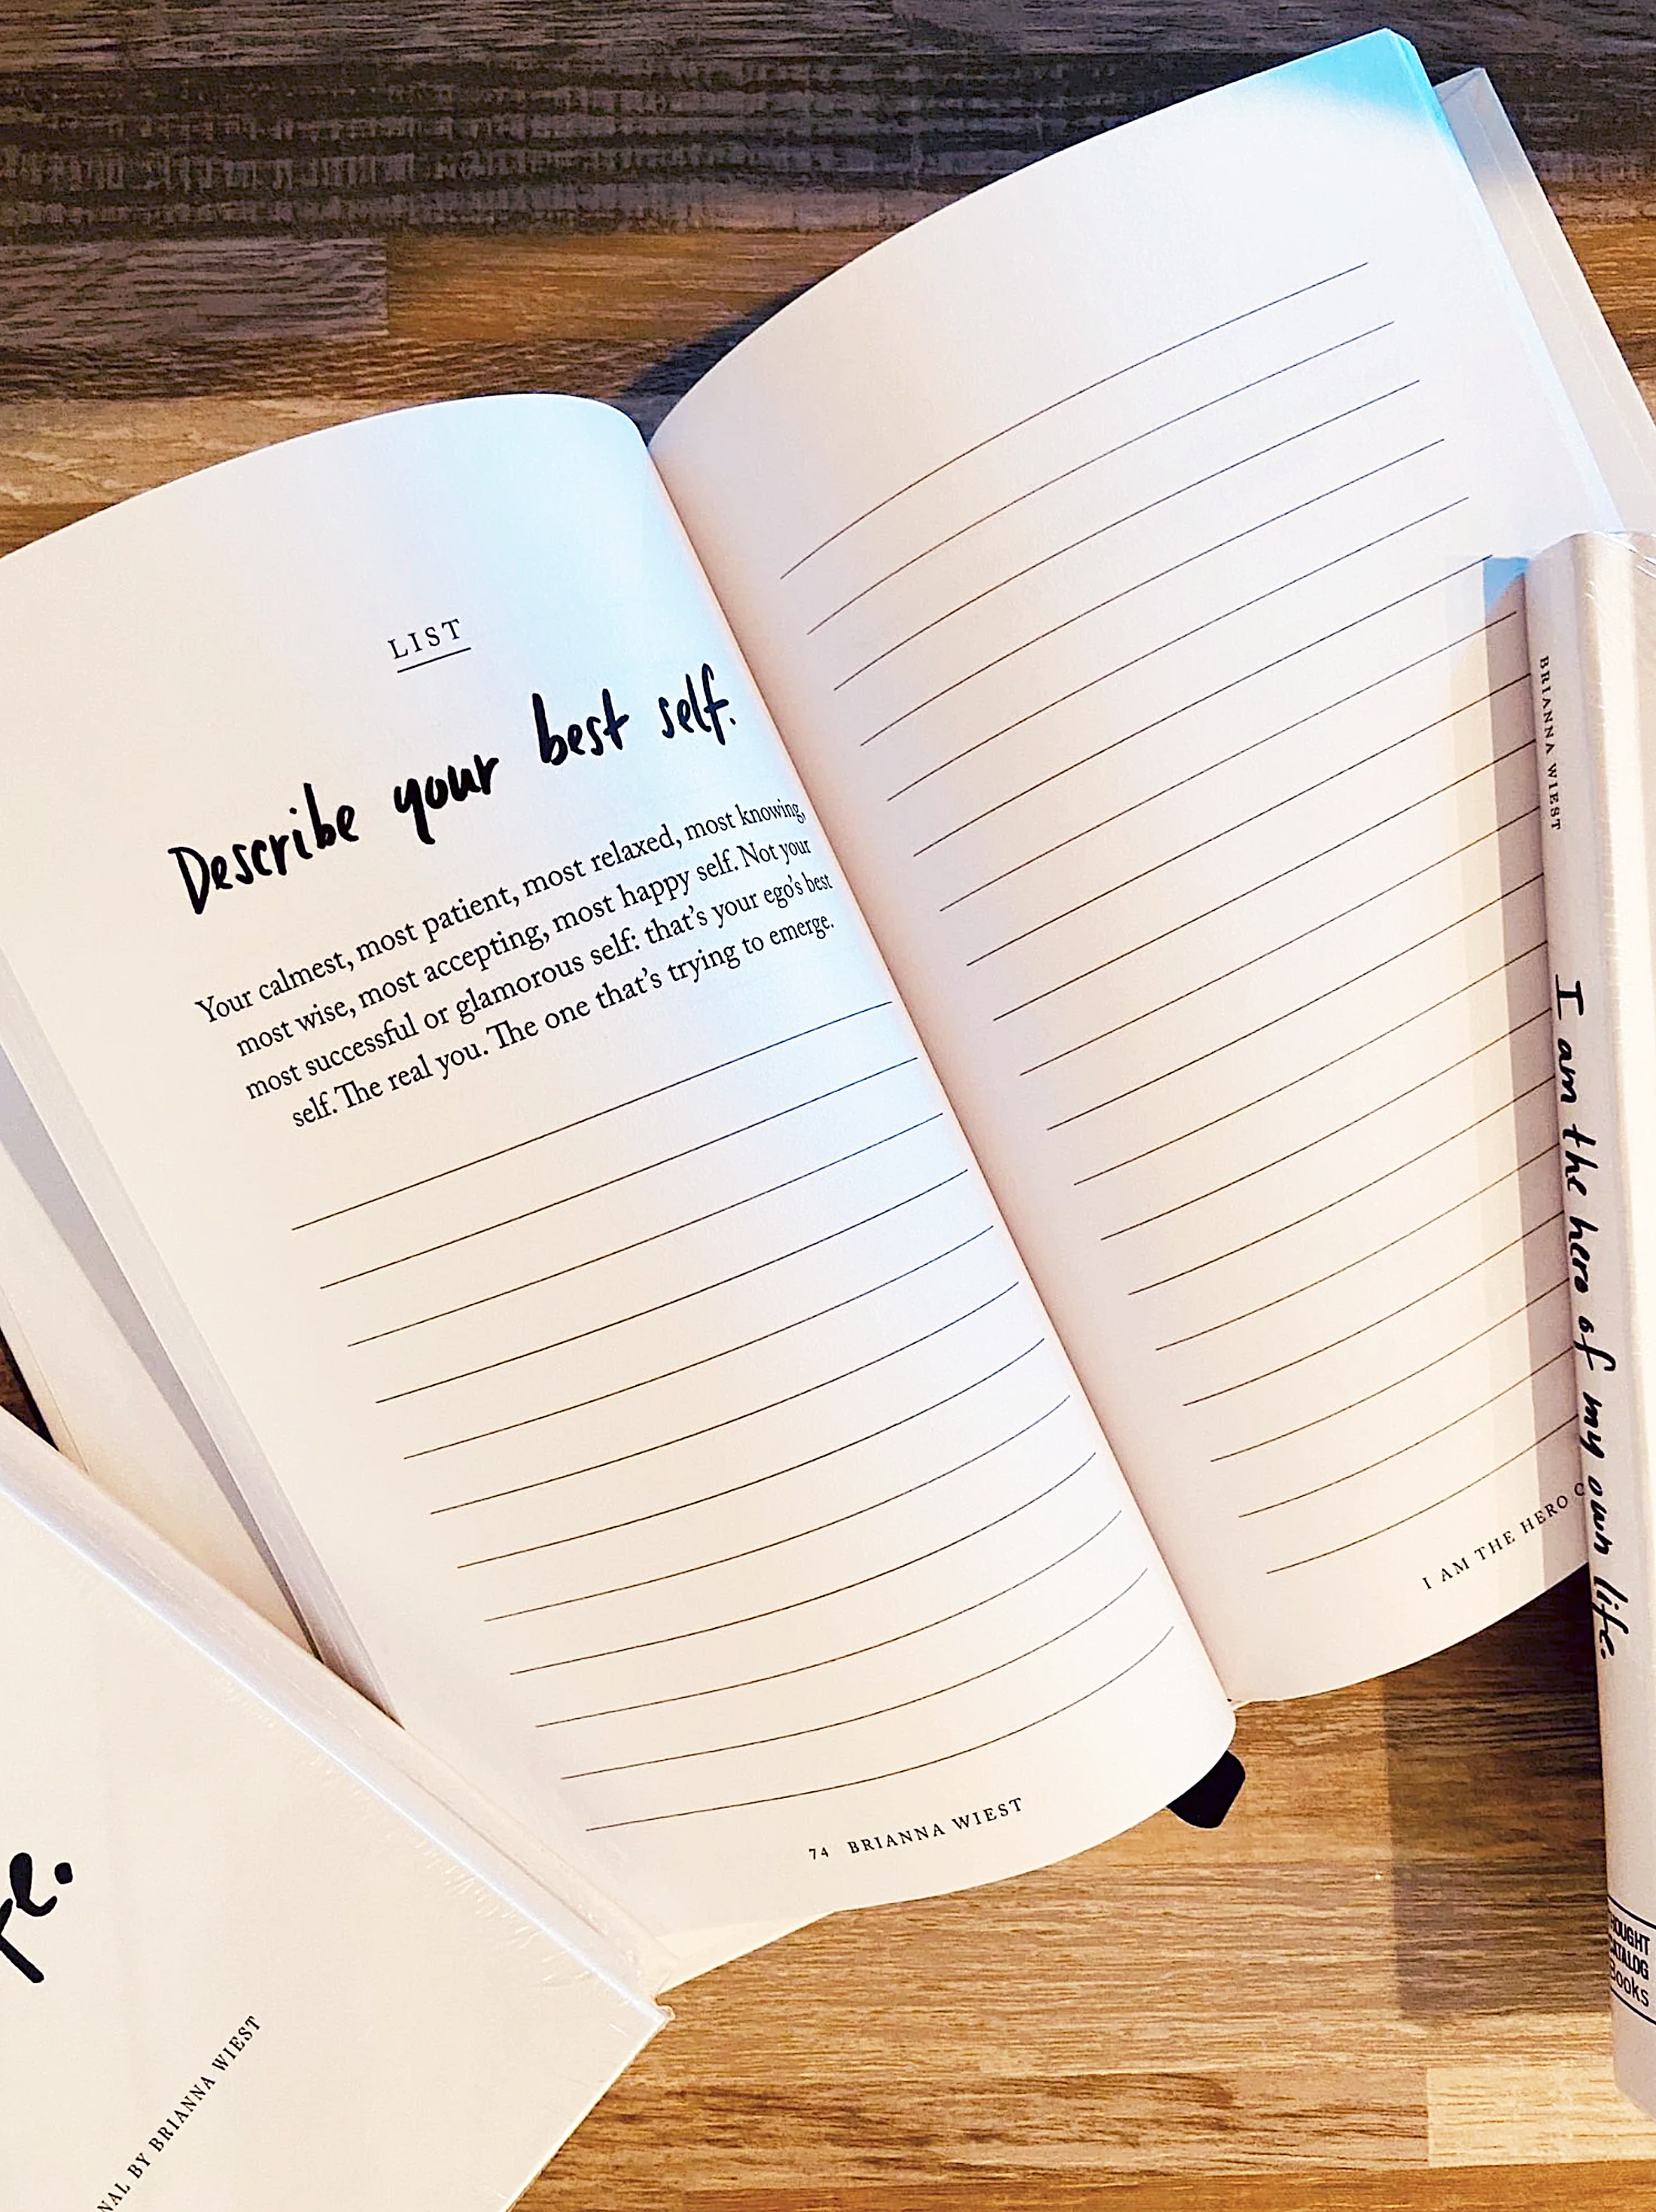 LIST
Describe your best self.
Your calmest, most patient, most relaxed, most knowing,
most wise, most accepting, most happy self. Not your
most successful or glamorous self: that's your ego's best
self. The real you. The one that's trying to emerge.
74 BRIANNA WIEST
I AM THE HERO
BRIANNA WIEST
I am the hero of my own life.
CATALOG
Books
BY BRIANNA WIEST